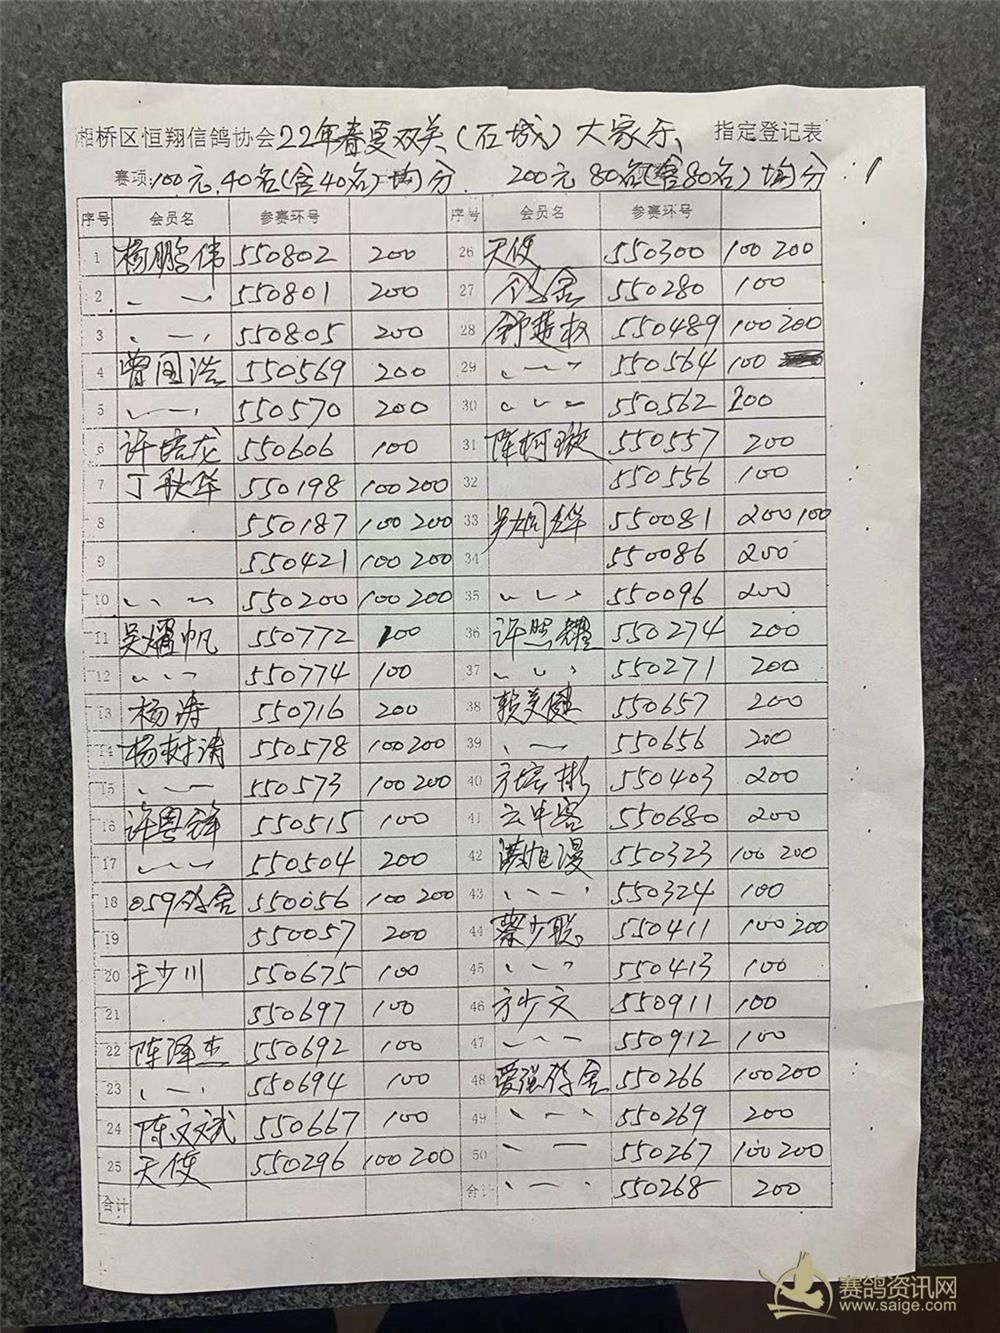 湘桥区恒翔信鸽协会22年春夏双关(石城)大家乐 指定登记表
赛项:100元.40名(含40名)均分. 200元80名(含80名)均分. 1
序号 会员名 参赛环号 序号 会员名 参赛环号
1 杨鹏伟 550802 200 26 天使 550300 100 200
2 、 一 、 550801 200 27 鸽舍 550280 100
3 、 一 、 550805 200 28 舒楚权 550489 100 200
4 曾国浩 550569 200 29 、 一 、 550564 100
5 、 一 、 550570 200 30 、 、 一 550562 200
6 许培龙 550606 100 31 陈柯璇 550557 200
7 丁秋华 550198 100 200 32 550556 100
8 550187 100 200 33 550081 200 100
9 550421 100 200 34 550086 200
10 、 、 、 550200 100 200 35 、 、 、 550096 200
11 吴耀帆 550772 100 36 许照耀 550274 200
12 、 、 、 550774 100 37 、 、 、 550271 200
13 杨涛 550716 200 38 赖美健 550657 200
14 杨树涛 550578 100 200 39 、 一 550656 200
15 、 一 550573 100 200 40 方培彬 550403 200
16 许粤锋 550515 100 41 云中客 550680 200
17 、 一 、 550504 200 42 洪旭漫 550323 100 200
18 059鸽舍 550056 100 200 43 、 一 一 、 550324 100
19 550057 200 44 蔡少聪 550411 100 200
20 王少川 550675 100 45 、 一 、 550413 100
21 550697 100 46 方少文 550911 100
22 陈泽杰 550692 100 47 、 一 、 550912 100
23 、 一 、 550694 100 48 爱强鸽舍 550266 100 200
24 陈文斌 550667 100 49 、 一 一 、 550269 200
25 天使 550296 100 200 50 、 一 一 550267 100 200
合计 合计 、 一 一 、 550268 200
赛鸽资讯网
www.saige.com